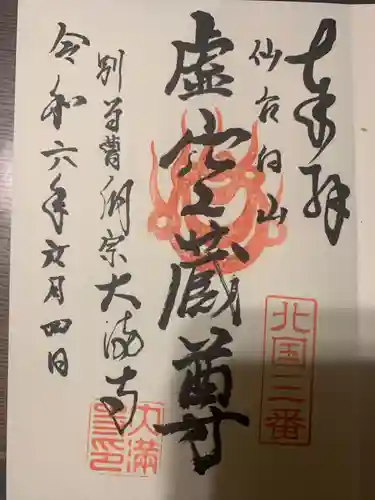 奉拝
仙台白山
虚空蔵尊
別号曹洞宗大満寺
令和六年文月四日
北国三番
大満